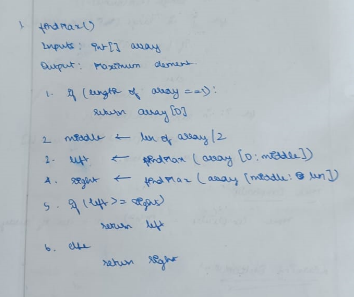 1. findMax()
Inputs: int[] array
Output: Maximum element
1. if (length of array ==1):
return array[0]
2. middle ← len of array/2
3. left ← findMax (array [0:middle])
4. right ← findMax (array [middle: len])
5. if (left >= right)
return left
6. else
return right